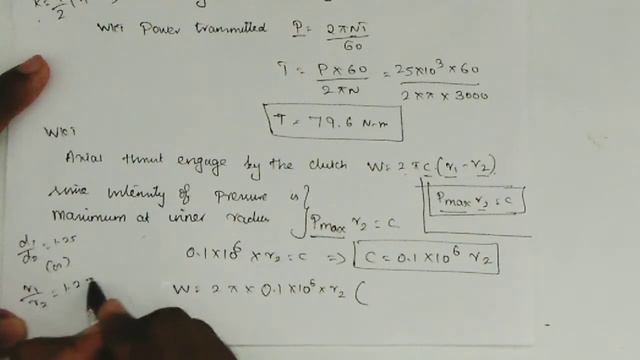 WKT Power transmitted P = 2πNT/60
T = P×60/2πN = 25×10³×60/2×π×3000
T = 79.6 N-m
WKT
Axial thrust engage by the clutch W = 2πC(r₁-r₂)
since intensity of pressure is
Maximum at inner radius } Pmax r₂ = C
Pmax r₂ = C
d₁/d₂ = 1.25
(or)
r₁/r₂ = 1.2
0.1×10⁶ × r₂ = C ⇒ C = 0.1×10⁶ r₂
W = 2π × 0.1×10⁶ × r₂ (